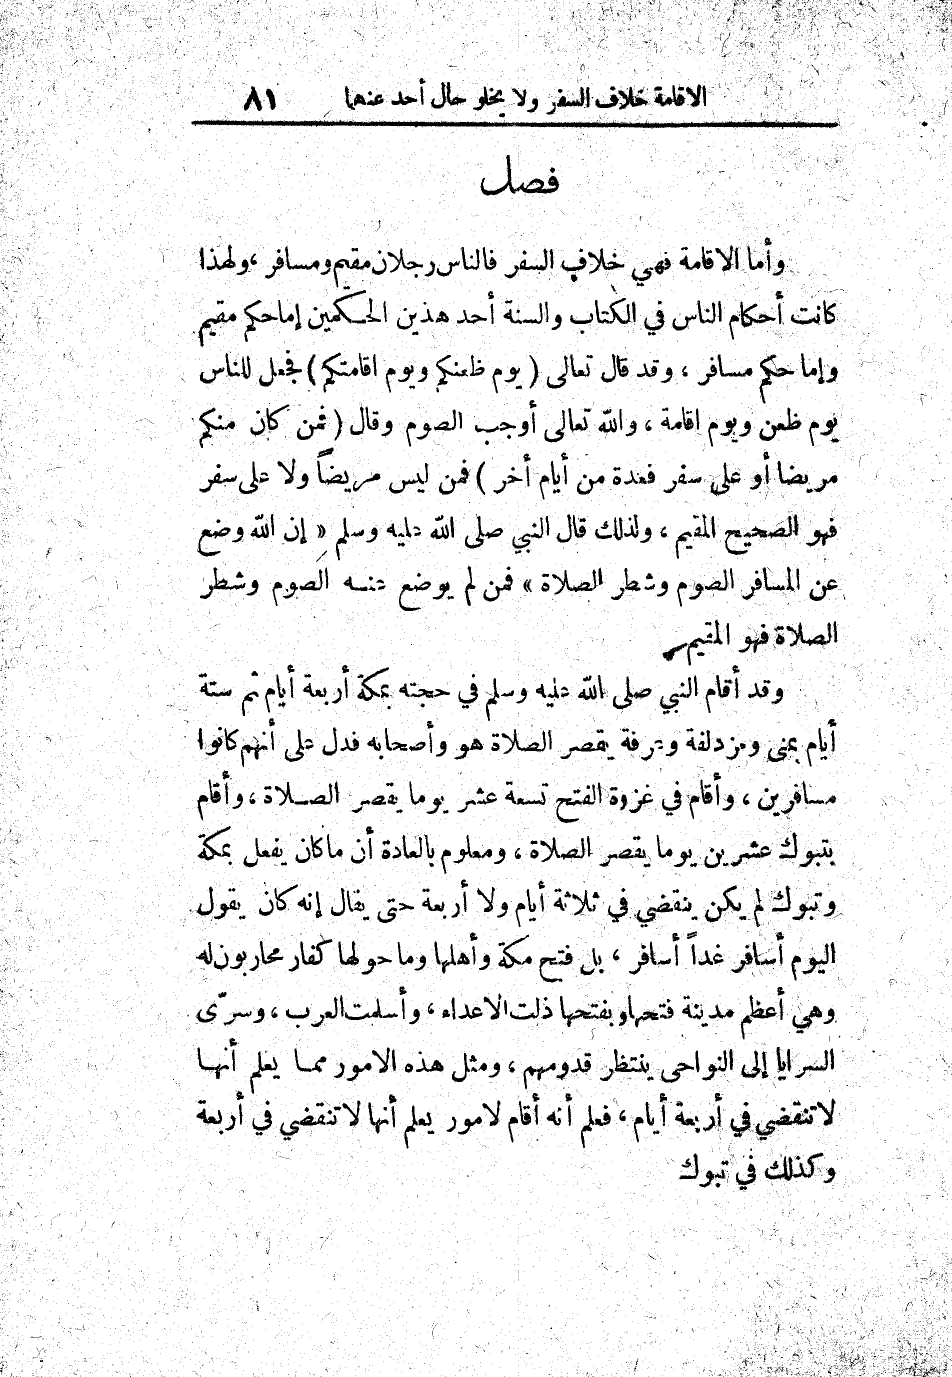 الاقامة خلاف السفر ولا يخلو حال أحد عنهما ٨١
فصل
وأما الاقامة فهي خلاف السفر فالناس رجلان مقيم ومسافر ، ولهذا
كانت أحكام الناس في الكتاب والسنة أحد هذين الحكمين إما حكم مقيم
وإما حكم مسافر ، وقد قال تعالى ( يوم ظعنكم ويوم اقامتكم ) فجعل للناس
يوم ظعن ويوم اقامة ، والله تعالى أوجب الصوم وقال ( فمن كان منكم
مريضا أو على سفر فعدة من أيام أخر ) فمن ليس مريضاً ولا على سفر
فهو الصحيح المقيم ، ولذلك قال النبي صلى الله عليه وسلم « إن الله وضع
عن المسافر الصوم وشطر الصلاة » فمن لم يوضع عنه الصوم وشطر
الصلاة فهو المقيم
وقد أقام النبي صلى الله عليه وسلم في حجته بمكة أربعة أيام ثم ستة
أيام بمنى ومزدلفة وعرفة يقصر الصلاة هو وأصحابه فدل على أنهم كانوا
مسافرين ، وأقام في غزوة الفتح تسعة عشر يوما يقصر الصلاة ، وأقام
بتبوك عشرين يوما يقصر الصلاة ، ومعلوم بالعادة أن ما كان يفعل بمكة
وتبوك لم يكن ينقضي في ثلاثة أيام ولا أربعة حتى يقال إنه كان يقول
اليوم أسافر غداً أسافر ، بل فتح مكة وأهلها وما حولها كفار محاربون له
وهي أعظم مدينة فتحها وبفتحها ذلت الاعداء ، وأسلمت العرب ، وسرّى
السرايا إلى النواحى ينتظر قدومهم ، ومثل هذه الامور مما يعلم أنها
لا تنقضي في أربعة أيام ، فعلم أنه أقام لامور يعلم أنها لا تنقضي في أربعة
وكذلك في تبوك